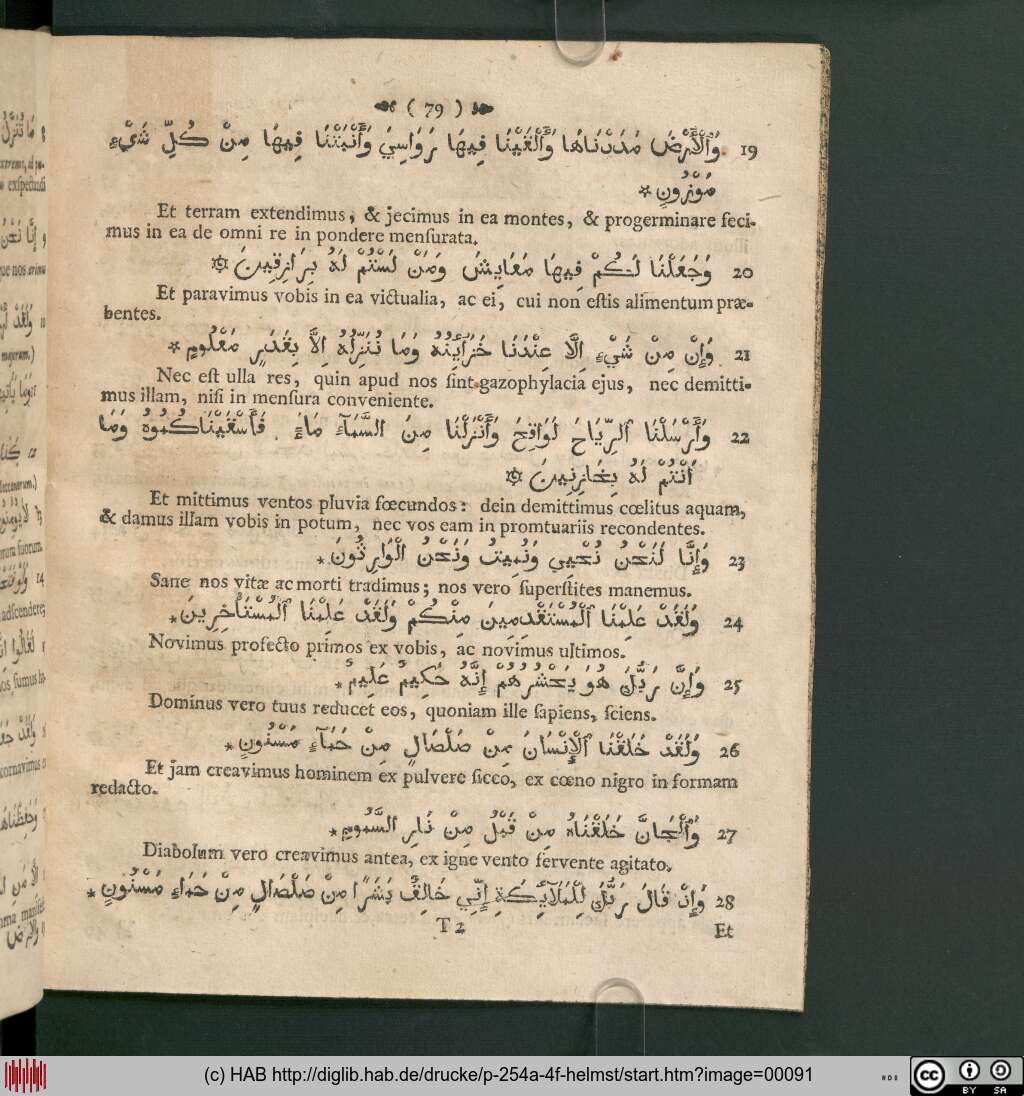 ( 79 )
19 وَٱلْأَرْضَ مَدَدْنَاهَا وَأَلْقَيْنَا فِيهَا رَوَاسِيَ وَأَنْبَتْنَا فِيهَا مِنْ كُلِّ شَيْءٍ
مَوْزُونٍ *
Et terram extendimus, & jecimus in ea montes, & progerminare feci-
mus in ea de omni re in pondere menſurata.
20 وَجَعَلْنَا لَكُمْ فِيهَا مَعَايِشَ وَمَنْ لَسْتُمْ لَهُ بِرَازِقِينَ ۞
Et paravimus vobis in ea victualia, ac ei, cui non eſtis alimentum præ-
bentes.
21 وَإِنْ مِنْ شَيْءٍ اِلَّا عِنْدَنَا خَزَآئِنُهُ وَمَا نُنَزِّلُهُ اِلاَّ بِقَدَرٍ مَعْلُومٍ *
Nec eſt ulla res, quin apud nos ſint gazophylacia ejus, nec demitti-
mus illam, niſi in menſura conveniente.
22 وَأَرْسَلْنَا ٱلرِّيَاحَ لَوَاقِحَ وَأَنْزَلْنَا مِنَ السَّمَآءِ مَاءً فَأَسْقَيْنَاكُمُوهُ وَمَا
أَنْتُمْ لَهُ بِخَازِنِينَ ۞
Et mittimus ventos pluvia fœcundos: dein demittimus cœlitus aquam,
& damus illam vobis in potum, nec vos eam in promtuariis recondentes.
23 وَإِنَّا لَنَحْنُ نُحْيِي وَنُمِيتُ وَنَحْنُ ٱلْوَارِثُونَ *
Sane nos vitæ ac morti tradimus; nos vero ſuperſtites manemus.
24 وَلَقَدْ عَلِمْنَا ٱلْمُسْتَقْدِمِينَ مِنْكُمْ وَلَقَدْ عَلِمْنَا ٱلْمُسْتَأْخِرِينَ *
Novimus profecto primos ex vobis, ac novimus ultimos.
25 وَإِنَّ رَبُّكَ هُوَ يَحْشُرُهُمْ إِنَّهُ حَكِيمٌ عَلِيمٌ *
Dominus vero tuus reducet eos, quoniam ille ſapiens, ſciens.
26 وَلَقَدْ خَلَقْنَا ٱلْإِنْسَانَ مِنْ صَلْصَالٍ مِنْ حَمَآءٍ مَسْنُونٍ *
Et jam creavimus hominem ex pulvere ſicco, ex cœno nigro in formam
redacto.
27 وَٱلْجَانَّ خَلَقْنَاهُ مِنْ قَبْلُ مِنْ نَارِ السَّمُومِ *
Diabolum vero creavimus antea, ex igne vento fervente agitato.
28 وَإِذْ قَالَ رَبُّكَ لِلْمَلَآئِكَةِ إِنِّي خَالِقٌ بَشَرًا مِنْ صَلْصَالٍ مِنْ حَمَاءٍ مَسْنُونٍ *
T 2
Et
(c) HAB http://diglib.hab.de/drucke/p-254a-4f-helmst/start.htm?image=00091
cc BY SA